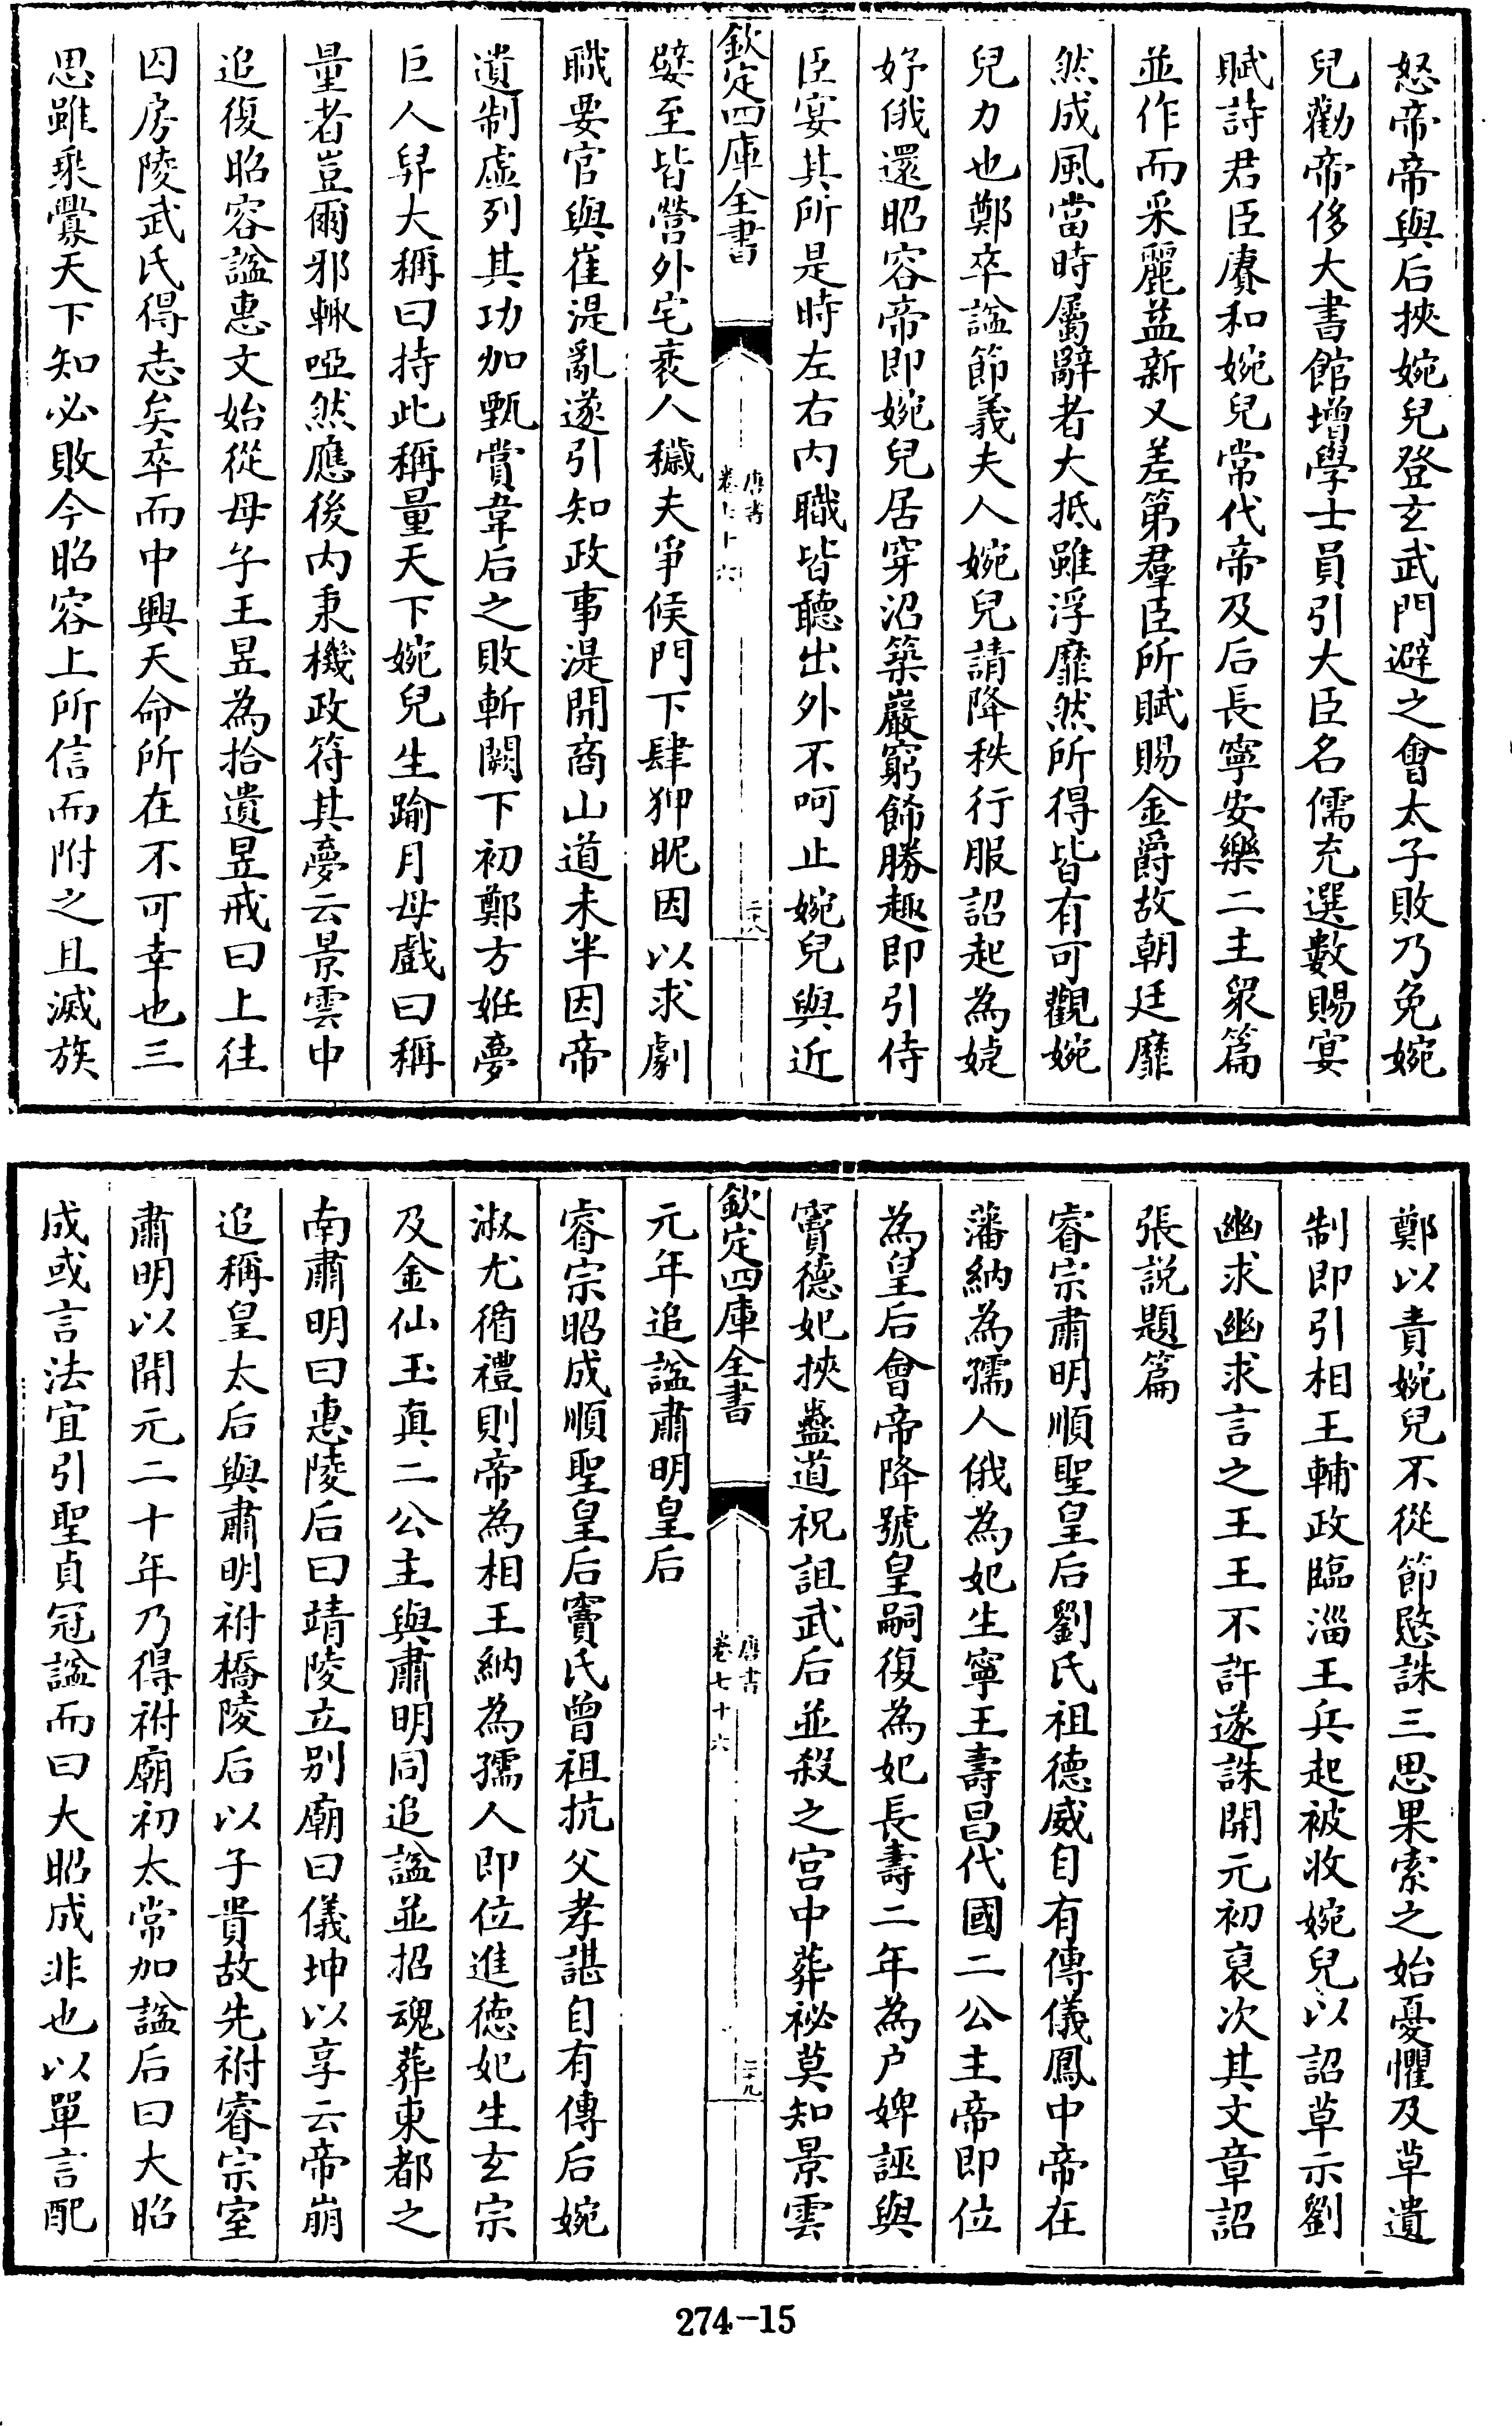 怒帝帝與后挾婉兒登玄武門避之會太子敗乃免婉
兒勸帝侈大書館增學士員引大臣名儒充選數賜宴
賦詩君臣賡和婉兒常代帝及后長寧安樂二主衆篇
並作而采麗益新又差第羣臣所賦賜金爵故朝廷靡
然成風當時屬辭者大抵雖浮靡然所得皆有可觀婉
兒力也鄭卒諡節義夫人婉兒請降秩行服詔起為婕
妤俄還昭容帝即婉兒居穿沼築巖窮飾勝趣即引侍
臣宴其所是時左右內職皆聽出外不呵止婉兒與近
欽定四庫全書
唐書
卷七十六
二十八
嬖至皆營外宅衺人穢夫爭候門下肆狎昵因以求劇
職要官與崔湜亂遂引知政事湜開商山道未半因帝
遺制虛列其功加甄賞韋后之敗斬闕下初鄭方姙夢
巨人畀大稱曰持此稱量天下婉兒生踰月母戲曰稱
量者豈爾邪輙啞然應後內秉機政符其夢云景雲中
追復昭容諡惠文始從母子王昱為拾遺昱戒曰上往
囚房陵武氏得志矣卒而中興天命所在不可幸也三
思雖乘釁天下知必敗今昭容上所信而附之且滅族
鄭以責婉兒不從節愍誅三思果索之始憂懼及草遺
制即引相王輔政臨淄王兵起被收婉兒以詔草示劉
幽求幽求言之王王不許遂誅開元初裒次其文章詔
張說題篇
睿宗肅明順聖皇后劉氏祖德威自有傳儀鳳中帝在
藩納為孺人俄為妃生寧王壽昌代國二公主帝即位
為皇后會帝降號皇嗣復為妃長壽二年為户婢誣與
竇德妃挾蠱道祝詛武后並殺之宮中葬祕莫知景雲
欽定四庫全書
唐書
卷七十六
二十九
元年追諡肅明皇后
睿宗昭成順聖皇后竇氏曾祖抗父孝諶自有傳后婉
淑尤循禮則帝為相王納為孺人即位進德妃生玄宗
及金仙玉真二公主與肅明同追諡並招魂葬東都之
南肅明曰惠陵后曰靖陵立别廟曰儀坤以享云帝崩
追稱皇太后與肅明祔橋陵后以子貴故先祔睿宗室
肅明以開元二十年乃得祔廟初太常加諡后曰大昭
成或言法宜引聖貞冠諡而曰大昭成非也以單言配
274-15